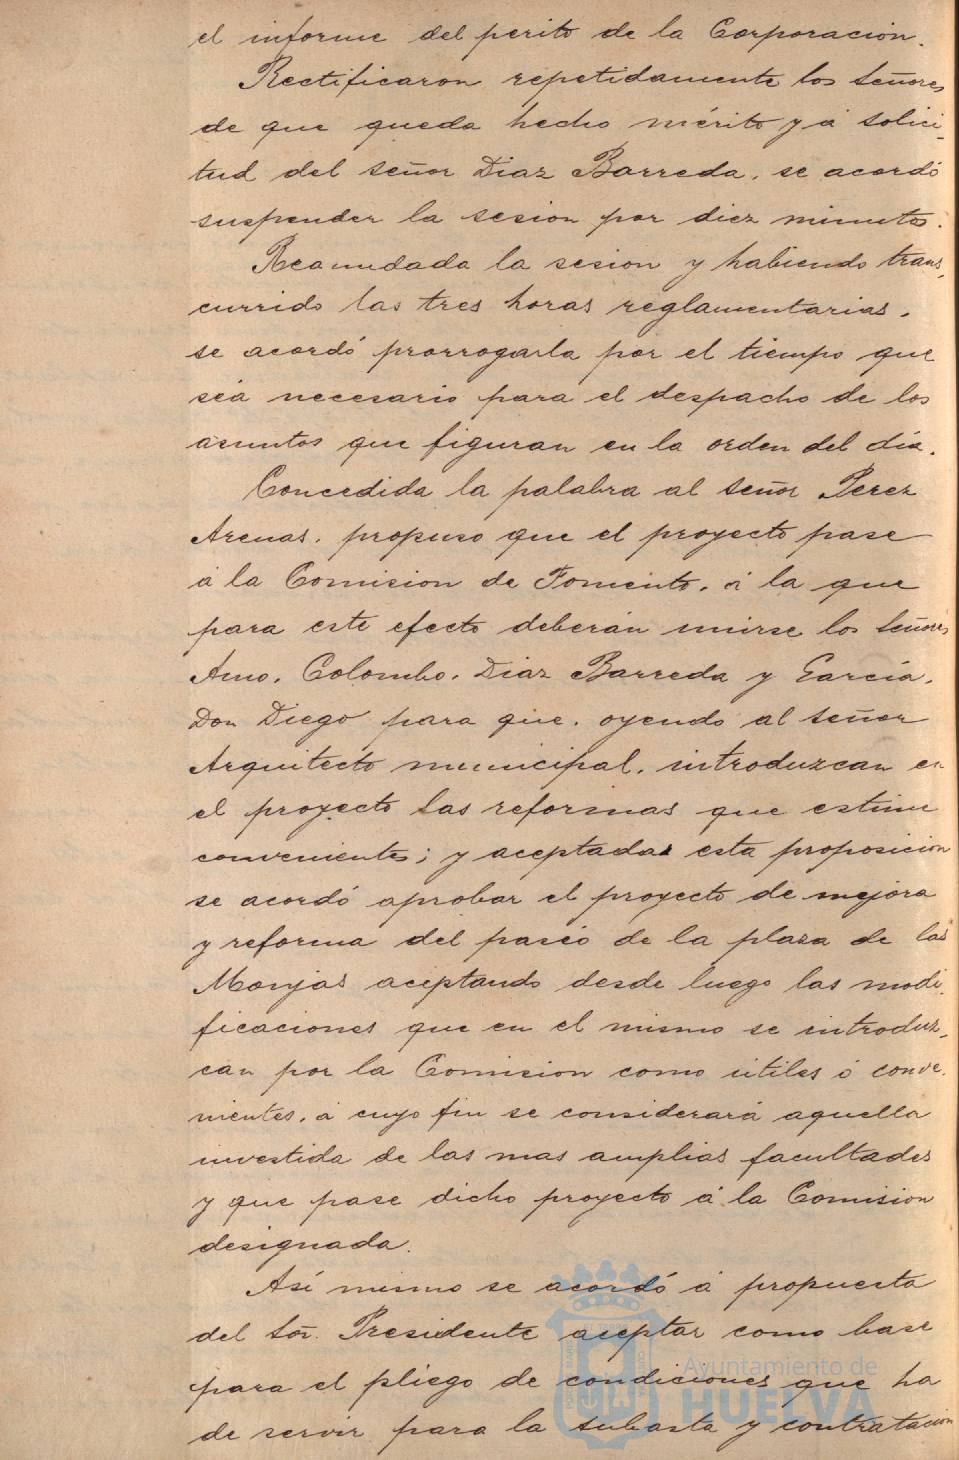 el informe del perito de la Corporacion.
Rectificaron repetidamente los señores
de que queda hecho mérito y á solici-
tud del señor Diaz Barreda, se acordó
suspender la sesion por diez minutos.
Reanudada la sesion y habiendo trans-
currido las tres horas reglamentarias,
se acordó prorrogarla por el tiempo que
sea necesario para el despacho de los
asuntos que figuran en la orden del día.
Concedida la palabra al señor Perez
Arenas, propuso que el proyecto pase
á la Comision de Fomento, á la que
para este efecto deberán unirse los señores
Amo, Colombo, Diaz Barreda y García,
Don Diego para que, oyendo al señor
Arquitecto municipal, introduzcan en
el proyecto las reformas que estime
convenientes; y aceptada esta proposicion
se acordó aprobar el proyecto de mejora
y reforma del paseo de la plaza de las
Monjas aceptando desde luego las modi-
ficaciones que en el mismo se introduz-
can por la Comision como útiles ó conve-
nientes, á cuyo fin se considerará aquella
investida de las mas amplias facultades
y que pase dicho proyecto á la Comision
designada.
Así mismo se acordó á propuesta
del Sor. Presidente aceptar como base
para el pliego de condiciones que ha
de servir para la subasta y contratacion
Ayuntamiento de
HUELVA